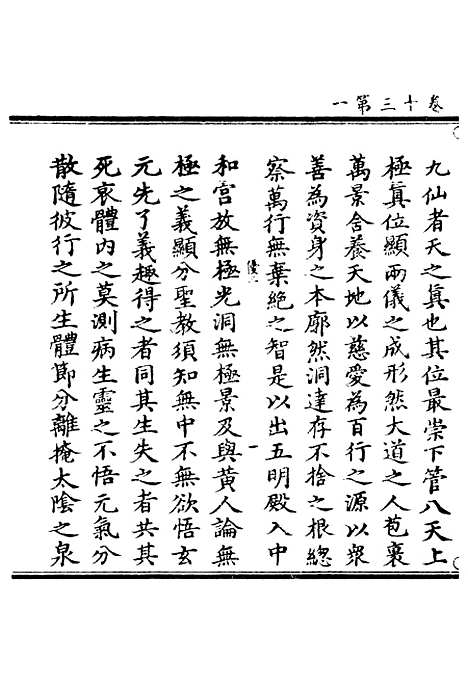 卷十三第一
九仙者天之真也其位最崇下管八天上
極真位顯兩儀之成形然大道之人苞裹
萬景含養天地以慈愛為百行之源以衆
善為資身之本廓然洞達存不捨之根總
察萬行無棄絕之智是以出五明殿入中
一
和宮放無極光洞無極景及與黃人論無
極之義顯分聖教須知無中不無欲悟玄
元先了義趣得之者同其生失之者共其
死哀體內之莫測病生靈之不悟元氣分
散隨彼行之所生體節分離掩太陰之泉